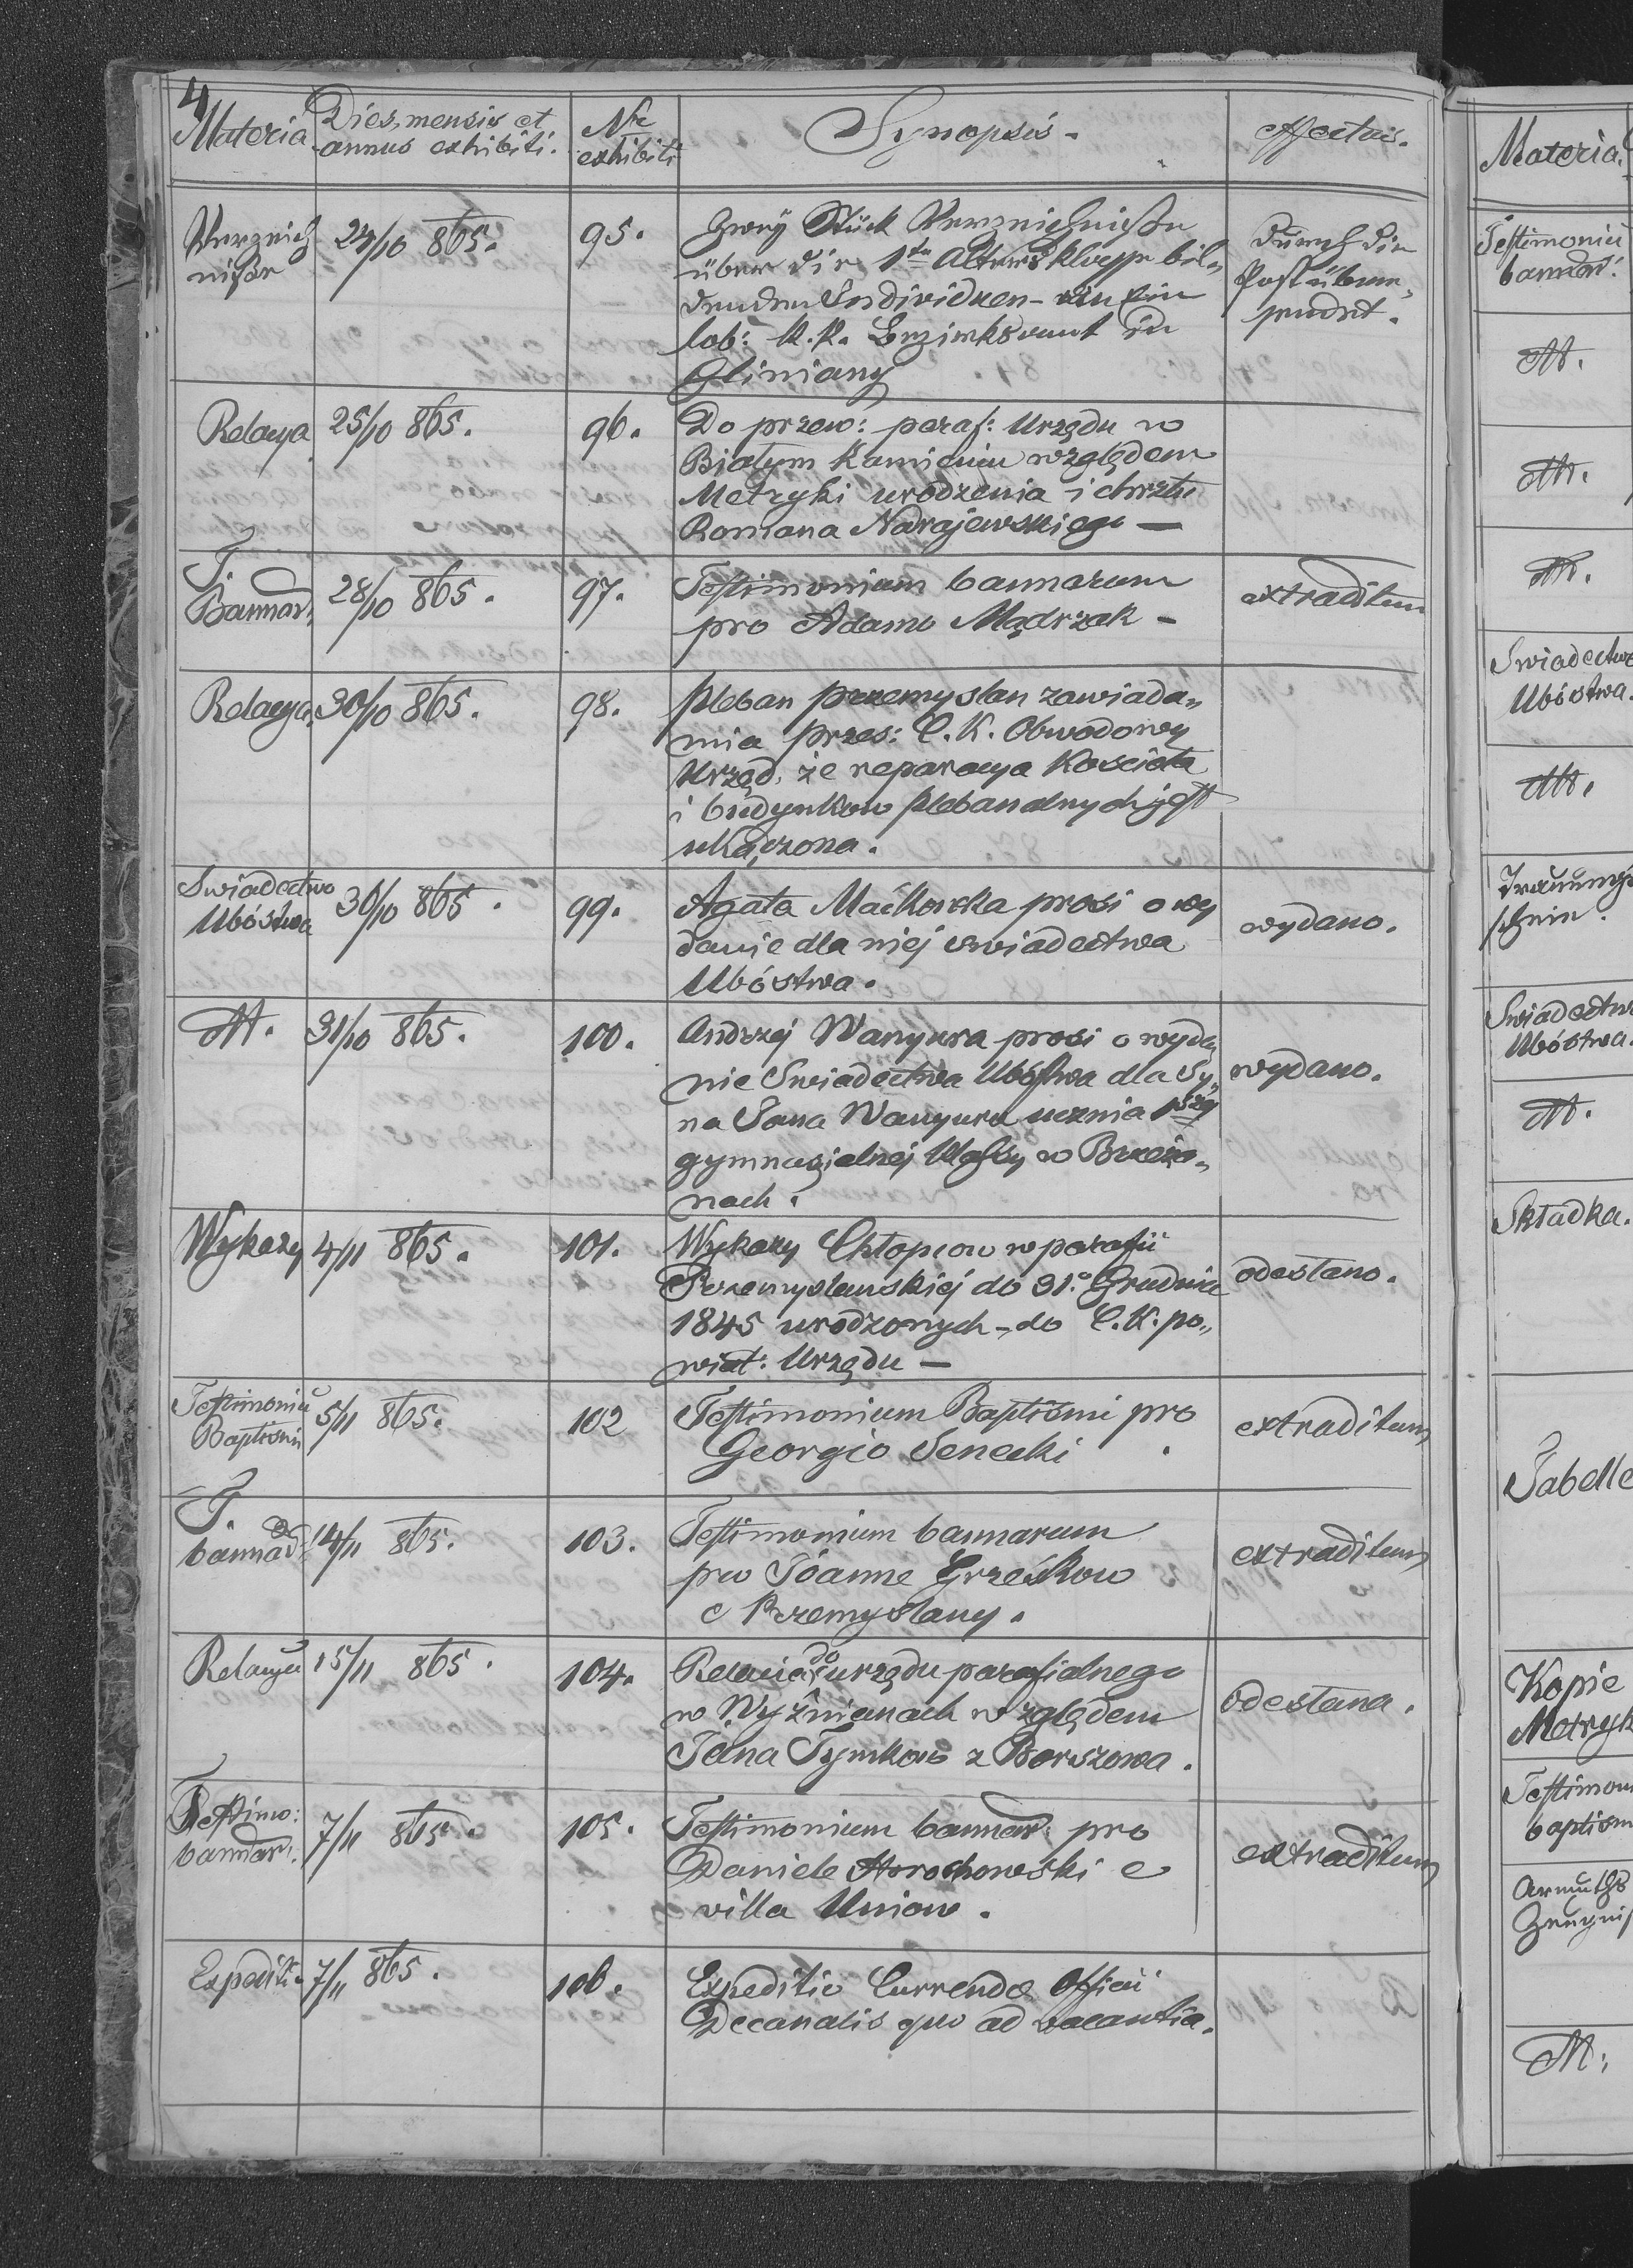 4
Materia
Dies, mensis et
annus exhibiti.
Nr
exhibiti
Synopsis -
effectus.
Verzeich
nisse
24/10 865.
95.
Zwey Stück Verzeichnisse
über die 1te Altersklasse bil„
denden Individuen - an ein
lob: K. K. Bezirksamt in
Gliniany
Durch die
Post über„
sendet.
Relacya
25/10 865.
96.
Do przew: paraf: Urzędu w
Białym Kamieniu względem
Metryki urodzenia i chrztu
Romana Narajewskiego —
T.
Bannar.
28/10 865.
97.
Testimonium bannarum
pro Adamo Mądrzak -
extraditum
Relacya
30/10 865.
98.
Pleban Przemyślan zawiada„
mia przes: C. K. Obwodowy
Urząd, że reparacya Kościoła
i budynkow plebanalnych jest
ukączona.
Swiadectwo
Ubóstwa
30/10 865.
99.
Agata Maćkowska prosi o wy
danie dla niej swiadectwa
Ubóstwa.
wydano.
31/10 865.
100.
Andrzej Wanyura prosi o wyda„
nie Swiadectwa Ubóstwa dla Sy„
na Jana Wanyura ucznia
gymnazialnej Klassy w Brzeża„
nach.
wydano.
Wykazy
4/11 865.
101.
Wykazy Chłopcow w parafii
Przemyslanskiej do 31.o Grudnia
1845 urodzonych - do C. K. po„
wiat: Urzędu —
odesłano.
Testimoniū
Baptismi
5/11 865.
102
Testimonium Baptismi pro
Georgio Senecki.
extraditum
T.
bannar.
14/11 865.
103.
Testimonium bannarum
pro Joanne Grześkow
e Przemyslany.
extraditum
Relacya
15/11 865.
104.
Relacia do urzędu parafialnego
w Wyżnianach względem
Jana Tymkow z Borszowa.
odesłana.
Testimo:
bannar.
7/11 865.
105.
Testimonium bannar. pro
Daniele Horochowski e
villa Uniow.
extraditum
Expediti.
7/11 865.
106.
Expeditio Currendæ Officii
Decanalis quo ad vacantia.
Materia
Testimoniū
bannar:
Swiadectwo
Ubóstwa.
Trauungs
schein.
Swiadectwo
Ubóstwa.
Składka.
Tabelle
Kopie
Metryk
Testimon
baptism
Armuths
Zeugniß